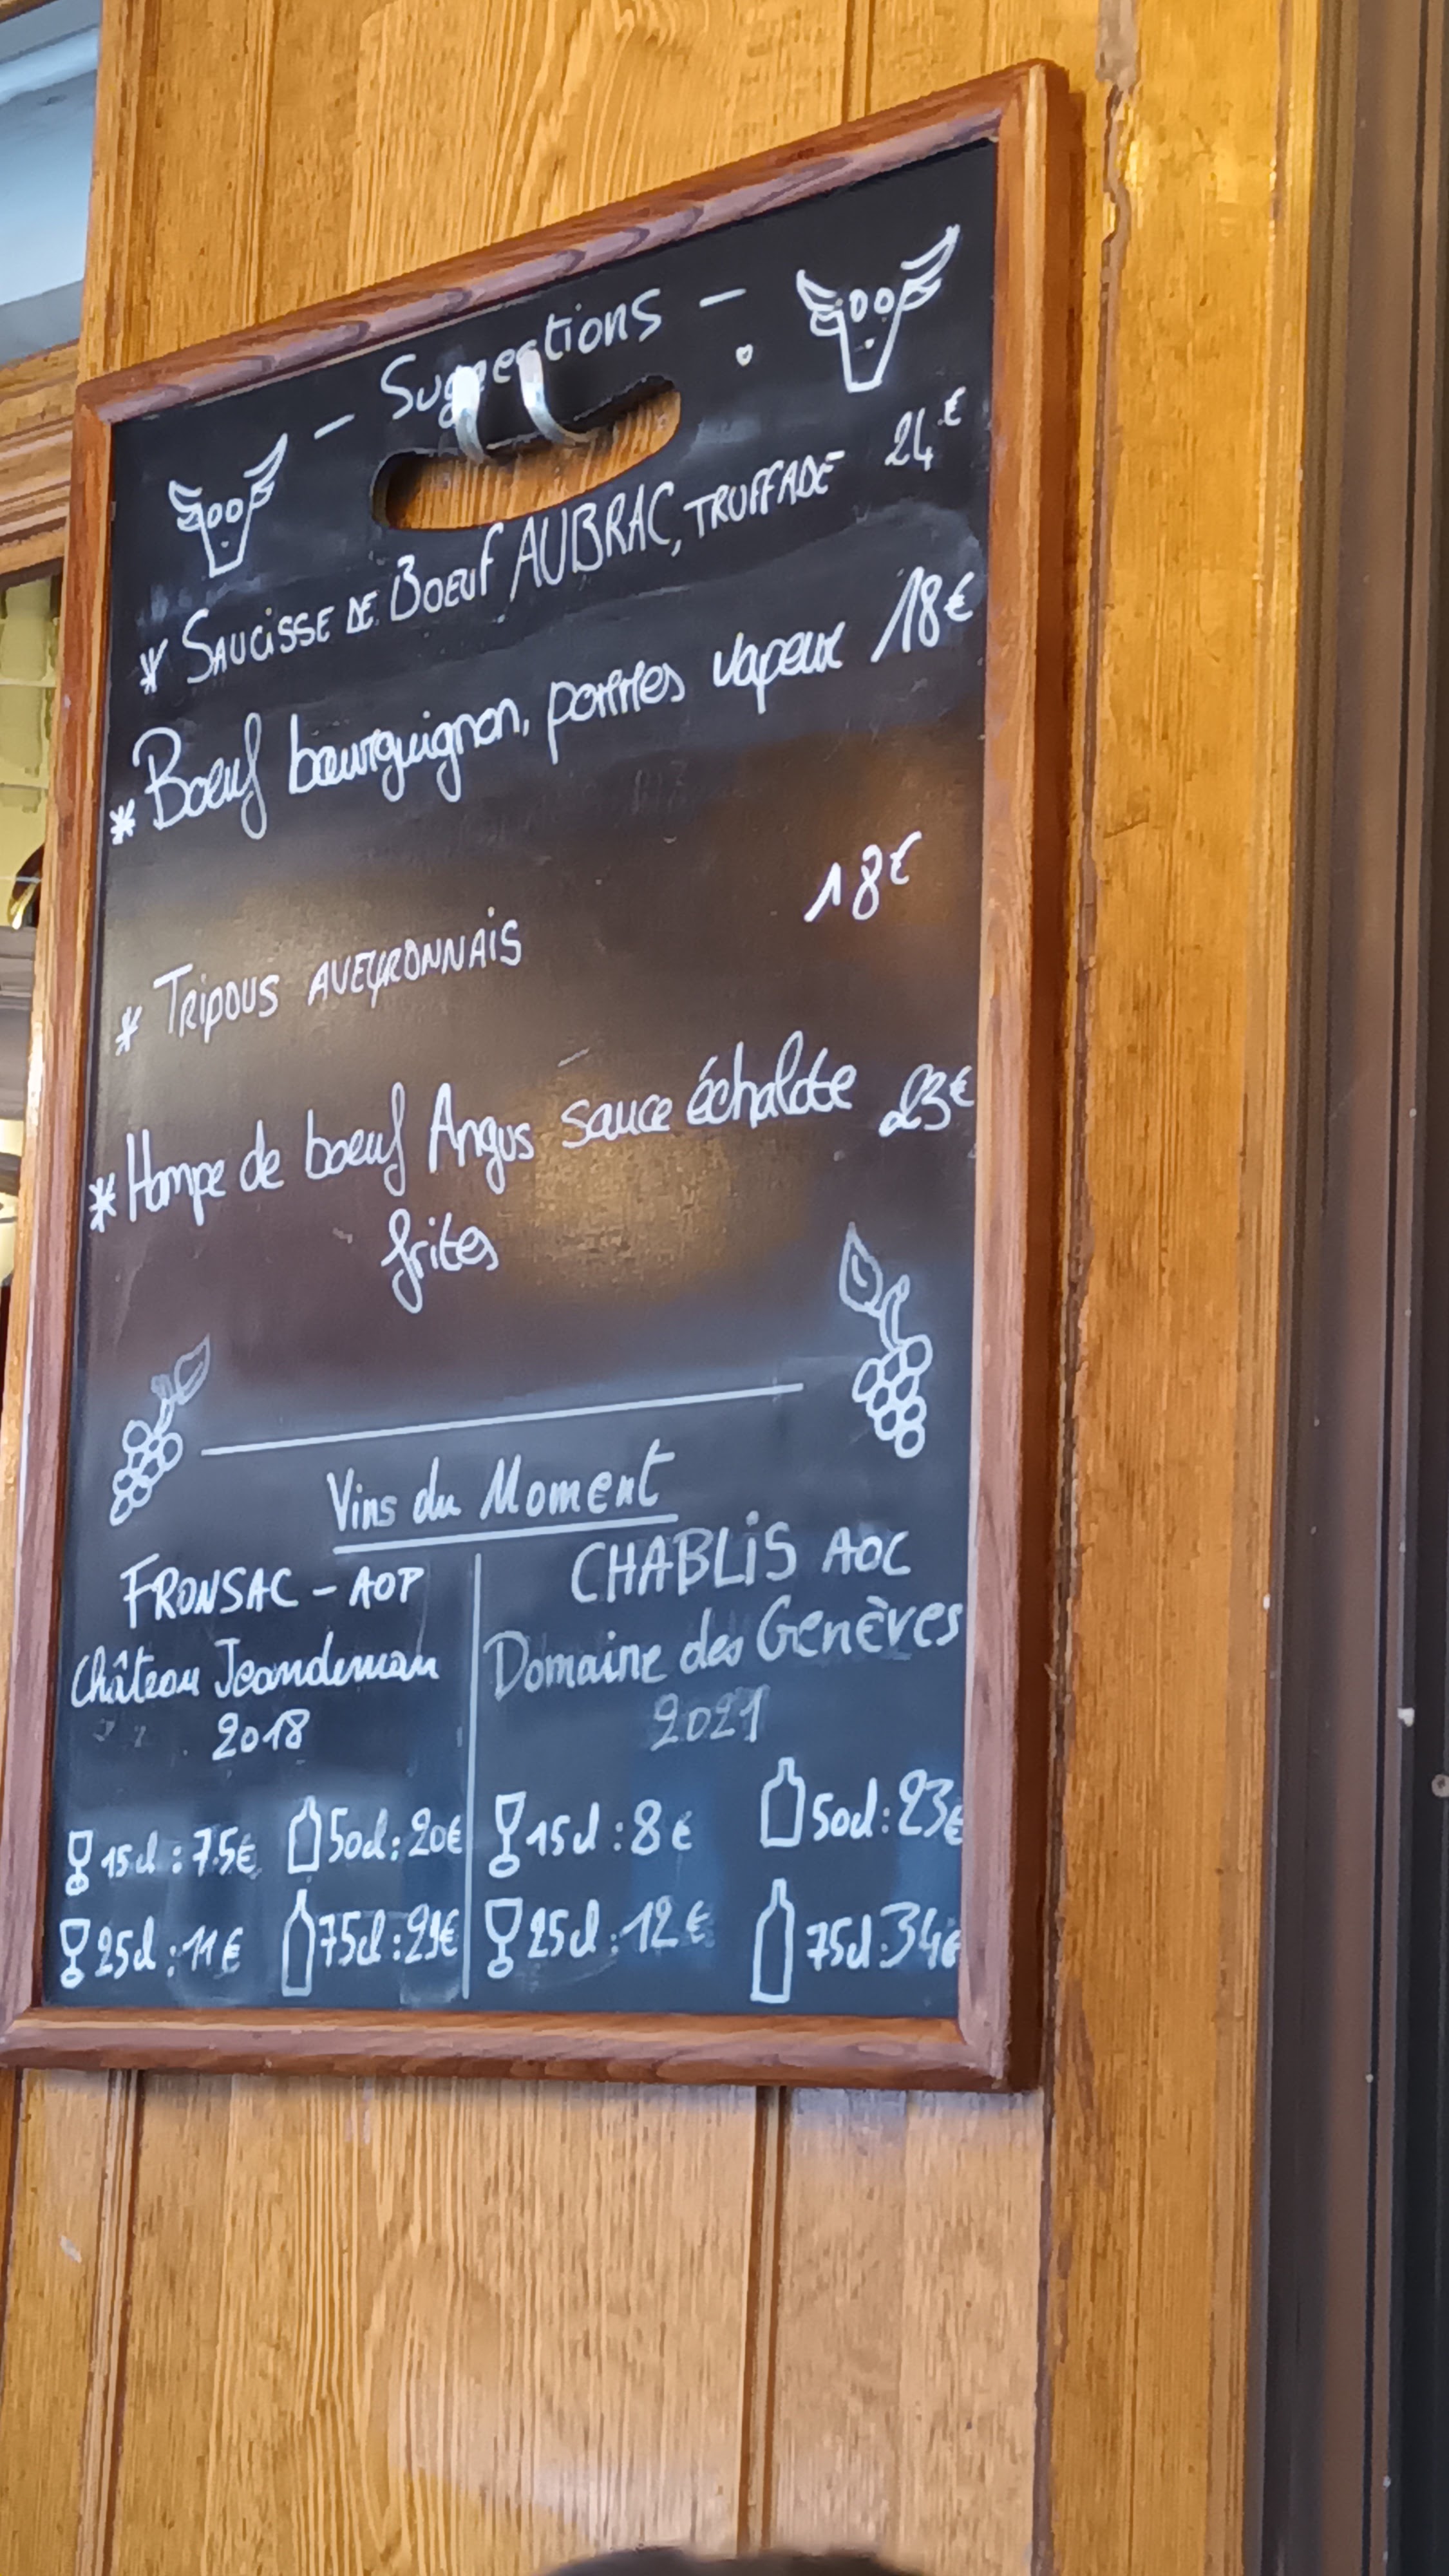 - Suggestions -
* SAUCISSE DE BOEUF AUBRAC, TRUFFADE 24€
* Boeuf bourguignon, pommes vapeur 18€
* TRIPOUS AVEYRONNAIS 18€
* Hampe de boeuf Angus sauce échalote 23€
frites
Vins du Moment
FRONSAC - AOP
Château Jeandeman
2018
15cl : 7.5€ 50cl : 20€
25cl : 11€ 75cl : 29€
CHABLIS AOC
Domaine des Genèves
2021
15cl : 8€ 50cl : 23€
25cl : 12€ 75cl 34€